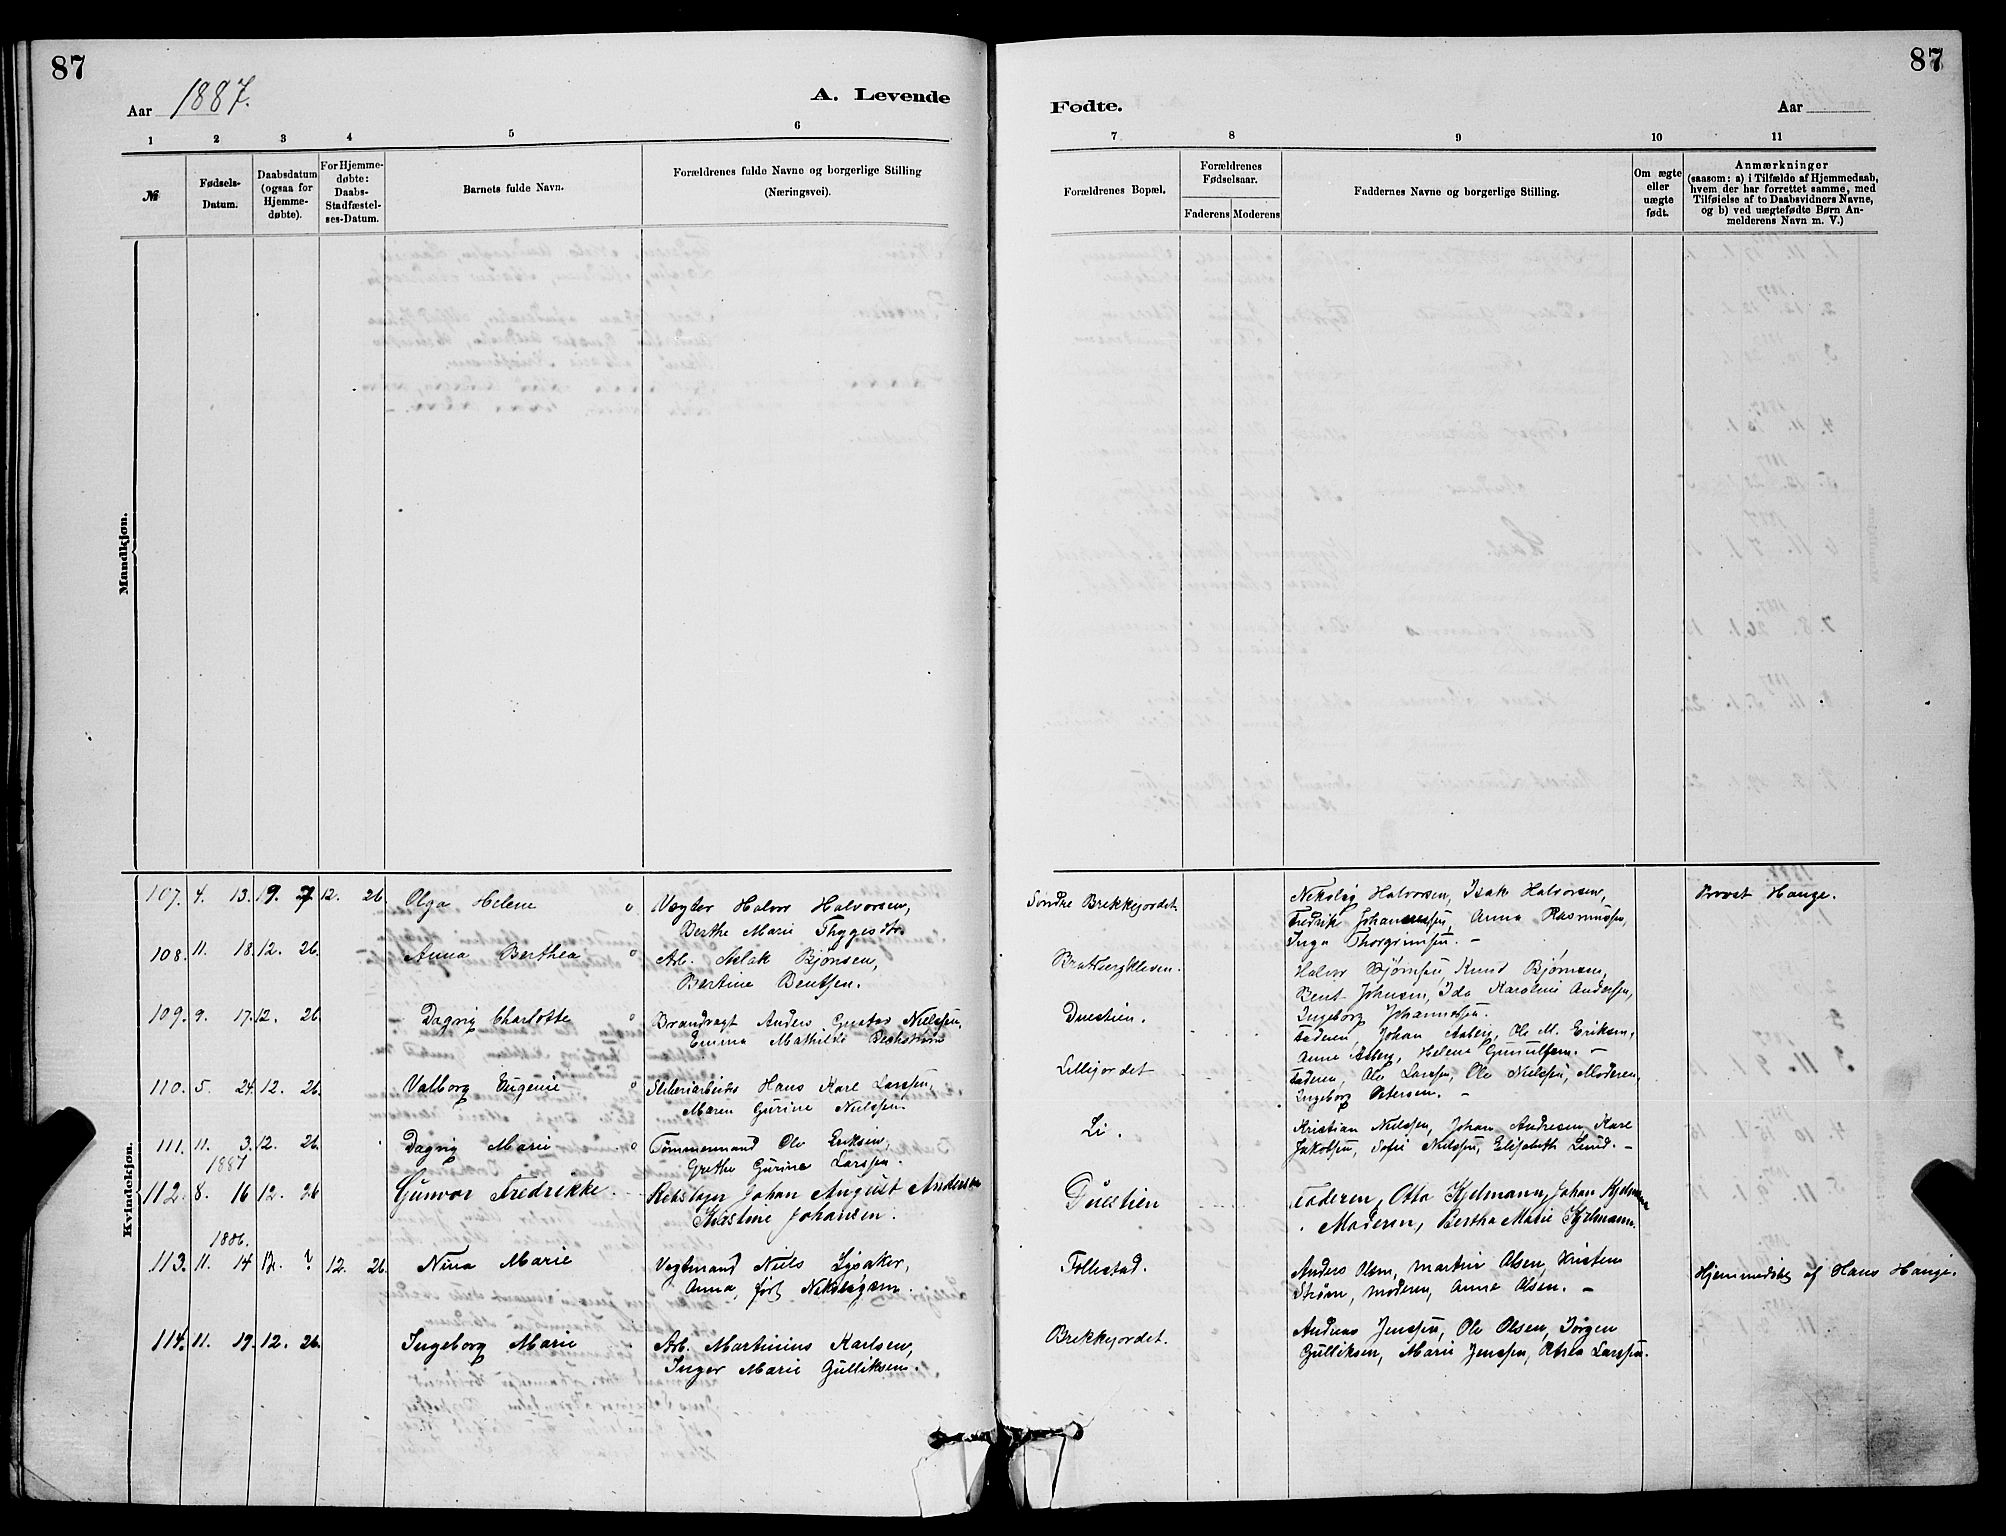 87
87
Aar 1887.
A. Levende
Fødte.
Aar
1
2
3
4
5
6
7
8
9
10
11
№
Fødsels-
Datum.
Daabsdatum
(ogsaa for
Hjemme-
døbte).
For Hjemme-
døbte:
Daabs-
Stadfæstel-
ses-Datum.
Barnets fulde Navn.
Forældrenes fulde Navne og borgerlige Stilling
(Næringsvei).
Forældrenes Bopæl.
Forældrenes
Fødselsaar.
Faderens
Moderens
Faddernes Navne og borgerlige Stilling.
Om ægte
eller
uægte
født.
Anmærkninger
(saasom: a) i Tilfælde af Hjemmedaab,
hvem der har forrettet samme, med
Tilføielse af to Daabsvidners Navne,
og b) ved uægtefødte Børn An-
melderens Navn m. V.)
Mandkjøn.
Kvindekjøn.
107. 4. 13. 19. 7 12. 26. Olga Helene Vægter Halvor Halvorsen, Søndre Brekkejordet. Nikolaj Halvorsen, Isak Halvorsen, Provst Hauge.
Berthe Marie Thygesdtr Fredrik Johannessen, Anna Rasmussen,
Inga Thorgrimsen. –
108. 11. 18. 12. 26. Anna Berthea Arb. Aslak Bjönsen, Bratsbergkleven. Halvor Bjørnsen, Knud Bjørnsen,
Bertine Bentsen. Bent Johnsen, Ida Karoline Andersen,
Ingeborg Johannessen.
109. 9. 17. 12. 26. Dagny Charlotte Brandvagt Anders Gustav Nielssen, Duestien. Faderen, Johan Aaberg, Ole M. Eriksen,
Emma Mathilde Anna Aaberg, Helene –
110. 5. 24. 12. 26. Valborg Eugenie Sliberiarbeider Hans Karl Larssen, Lillejordet Faderen, Ole Larssen, Ole Nielssen, Moderen,
Maren Gurine Nielssen. Ingeborg Petersen. –
111. 11. 3. 12. 26. Dagny Marie Tømmermand Ole Eriksen, Li. Kristian Nielssen, Johan Andresen, Karl
Grethe Gurine Larssen. Jakobsen, Sofie Nielssen, Elisabeth Lund. –
1887
112. 8. 16 12. 26 Gunvor Fredrikke. Rebslager Johan August Andersen Duestien Faderen, Otto Kjelmann, Johan Kjelmann
Kristine Johansen. Moderen, Bertha Marie Kjelmann.
1886.
113. 11. 14 12. ? 12. 26. Nina Marie Vegtmand Niels Lysaker, Follestad. Anders Olsen, Martin Olsen, Kristen
Anna, født Nikolaisen. Strøm, Moderen, Anne Olsen. – Hjemmedøbt af Hans Hauge.
114. 11. 19. 12. 26. Ingeborg Marie Arb. Martinius Karlsen, Brekkejordet. Andreas Jenssen, Ole Olsen, Jörgen
Inger Marie Gulliksen. Gulliksen, Marie Jenssen, Petrea Larssen.